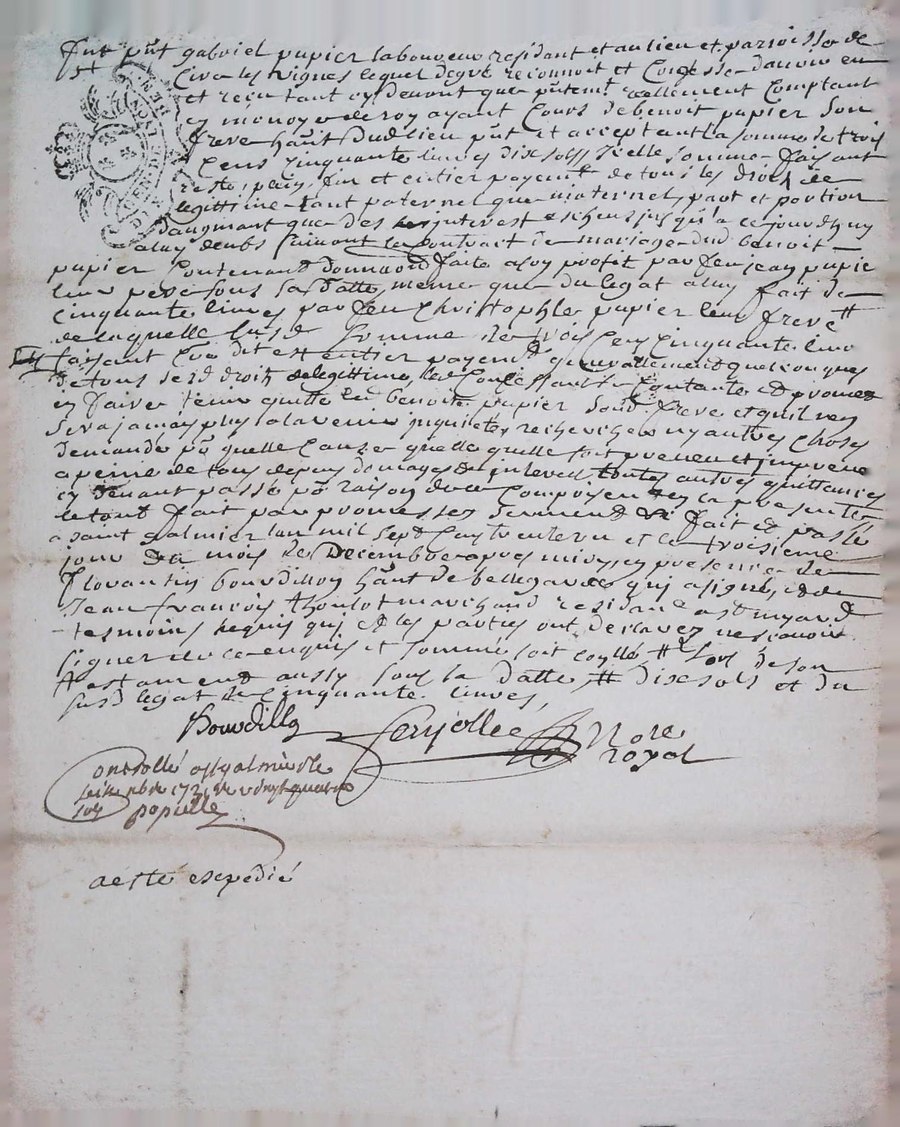 fut pñt gabriel pupier laboureur residant et au lieu et parroisse de
Civa les vignes lequel de gré reconnoit et confesse davoir eu
et reçu tant cy devant que pñtemt reellement comptant
en monoye de roy ayant cours de benoit pupier son
frere habt dud lieu pñt et acceptant la somme de trois
cens cinquante livres dix sols icelle somme faisant
reste, paix, fin et entier payemt de tous les droits de
legittime tant paternel que maternel, part et portion
daugmant que des interest escheus jusqu'a ce jourdhuy
a luy deubs suivant le contrait de mariage dud benoit
pupier contenand donnaon faite a son profet par feu jean pupie
leur pere sous sa datte, meme que du legat a luy fait de
cinquante livres par feu Christophle pupier leur frere #
de laquelle susd somme de trois cens cinquante livres
faisant co dit est entier payemt generallement quelconques
de tous sesd droits de legittime, led confessant content et promet
en faire tenir quitte led benoit pupier sond frere et quil n'en
sera jamais plus a la venir inquieté, recherché ny autres choses
demandé pr quelle cause quelle quelle soit preveu et impreveu
a peine de tous depens domages toutes autres quittances
cy devant passé pr raison de ce comprises en la presente
le tout fait par promesses serment fait et passé
a saint galmier lan mil sept cens trente un et le troisieme
jour du mois de Decembre apres midy, en presence de
florantin bourdillon habt de bellegarde qui a signé, et de
Jean françois thoulot marchand residant a st myard
tesmoins requis qui et les parties ont declarez ne scavoir
signer de ce enquis et sommé soit conllé # lors de son
testament aussy sous sa datte, # dix sols et du
susd legat de cinquante livres,
Bourdillon
Nore
royal
ontrollé a st galmier le
decembre 1731 vingt quatre
sols
a esté expedié